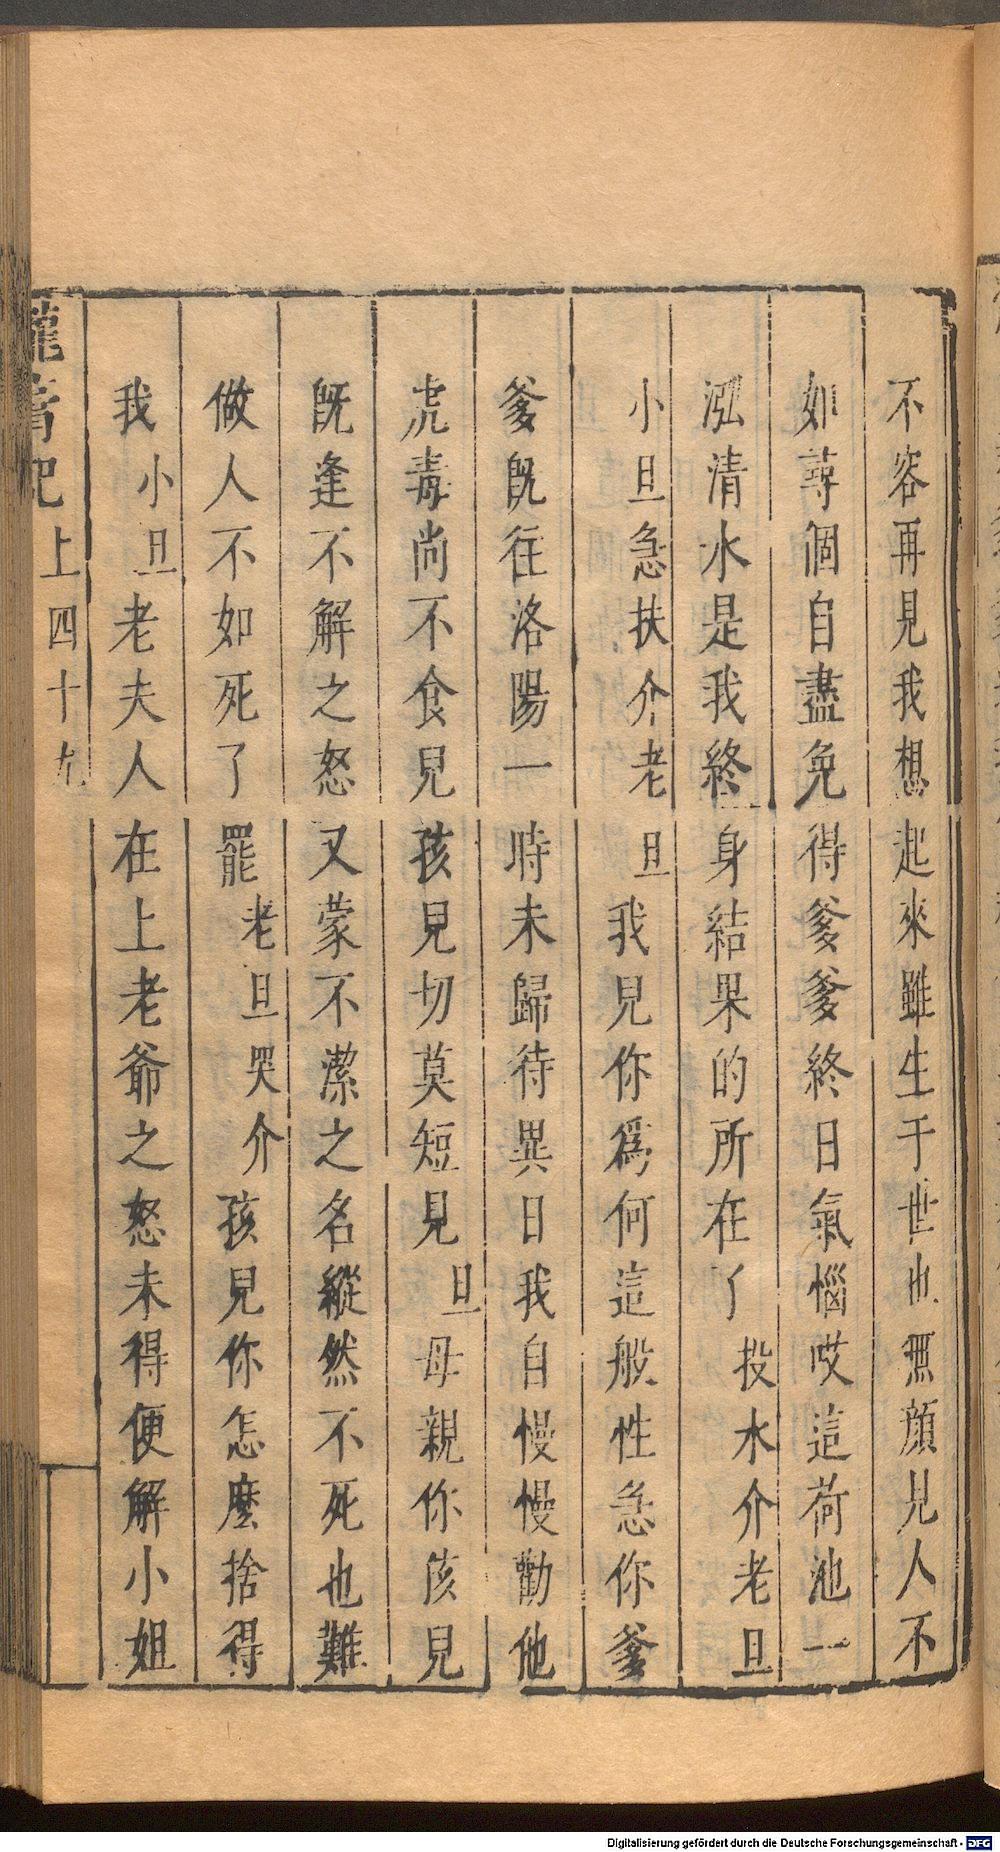 不容再見我想起來雖生于世也無顔見人不
如尋個自盡免得爹爹終日氣惱哎這荷池一
泓清水是我終身結果的所在了投水介老旦
小旦急扶介老旦我見你爲何這般性急你爹
爹旣往洛陽一時未歸待異日我自慢慢勸他
虎毒尚不食兒孩兒切莫短見旦母親你孩兒
旣逢不解之怒又蒙不潔之名縱然不死也難
做人不如死了罷老旦哭介孩兒你怎麼捨得
我小旦老夫人在上老爺之怒未得便解小姐
龍膏記上四十九
Digitalisierung gefördert durch die Deutsche Forschungsgemeinschaft - DFG